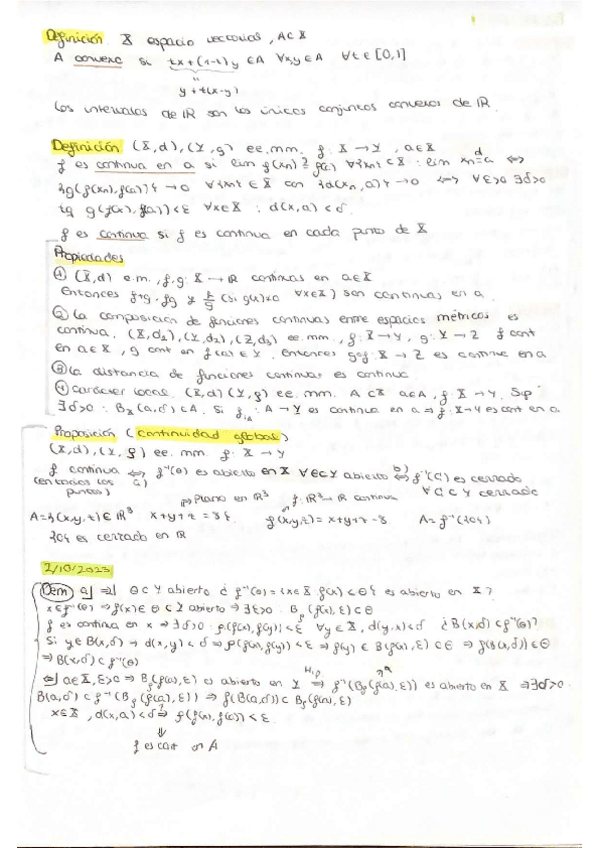 Definición X espacio vectorial, A⊂X
A convexo si tx+(1-t)y ∈A ∀x,y∈A ∀t∈[0,1]
"
y+t(x-y)
Los intervalos de IR son los únicos conjuntos convexos de IR.
Definición (X,d), (Y,ρ) ee.mm. f: X→Y, a∈X
f es continua en a si lim f(xn) = f(a) ∀{xn}⊂X : lim xn = a ⟺
{ρ(f(xn),f(a))}→0 ∀{xn}∈X con {d(xn,a)}→0 ⟺ ∀ε>0 ∃δ>0
tq ρ(f(x),f(a))<ε ∀x∈X : d(x,a)<δ.
f es continua si f es continua en cada punto de X
Propiedades
① (X,d) e.m., f,g: X→IR continuas en a∈X
Entonces f+g, fg y f/g (si g(x)≠0 ∀x∈X) son continuas en a.
② La composición de funciones continuas entre espacios métricos es
continua. (X,d1), (Y,d2), (Z,d3) ee.mm., f: X→Y, g: Y→Z f cont
en a∈X, g cont en f(a)∈Y. Entonces g∘f: X→Z es continua en a
③ La distancia de funciones continuas es continua
④ Carácter local. (X,d) (Y,ρ) ee.mm. A⊂X a∈A, f: X→Y. Sup
∃δ>0 : Bx(a,δ)⊂A. Si f|A : A→Y es continua en a ⇒ f: X→Y es cont en a
Proposición (continuidad global)
(X,d), (Y,ρ) ee.mm. f: X→Y
f continua ⟺ f⁻¹(Θ) es abierto en X ∀Θ⊂Y abierto ⟺ f⁻¹(C) es cerrado
(en todos los puntos) a) b) ∀C⊂Y cerrado
plano en IR³ f: IR³→IR continua
A={(x,y,z)∈IR³ x+y+z=8}. f(x,y,z)=x+y+z-8 A=f⁻¹({0})
{0} es cerrado en IR
2/10/2023
Dem a) ⇒) Θ⊂Y abierto ¿f⁻¹(Θ)={x∈X f(x)∈Θ} es abierto en X?
x∈f⁻¹(Θ) ⇒ f(x)∈Θ⊂Y abierto ⇒ ∃ε>0. Bρ(f(x),ε)⊂Θ
f es continua en x ⇒ ∃δ>0 · ρ(f(x),f(y))<ε ∀y∈X, d(y,x)<δ ¿B(x,δ)⊂f⁻¹(Θ)?
Si y∈B(x,δ) → d(x,y)<δ ⇒ ρ(f(x),f(y))<ε ⇒ f(y)∈B(f(x),ε)⊂Θ ⇒ f(B(x,δ))⊂Θ
⇒ B(x,δ)⊂f⁻¹(Θ)
⇐) a∈X, ε>0 ⇒ Bρ(f(a),ε) es abierto en Y ⇒ f⁻¹(Bρ(f(a),ε)) es abierto en X ⇒ ∃δ>0.
B(a,δ)⊂f⁻¹(Bρ(f(a),ε)) ⇒ f(B(a,δ))⊂Bρ(f(a),ε)
x∈X, d(x,a)<δ ⇒ ρ(f(x),f(a))<ε.
⇓
f es cont en A